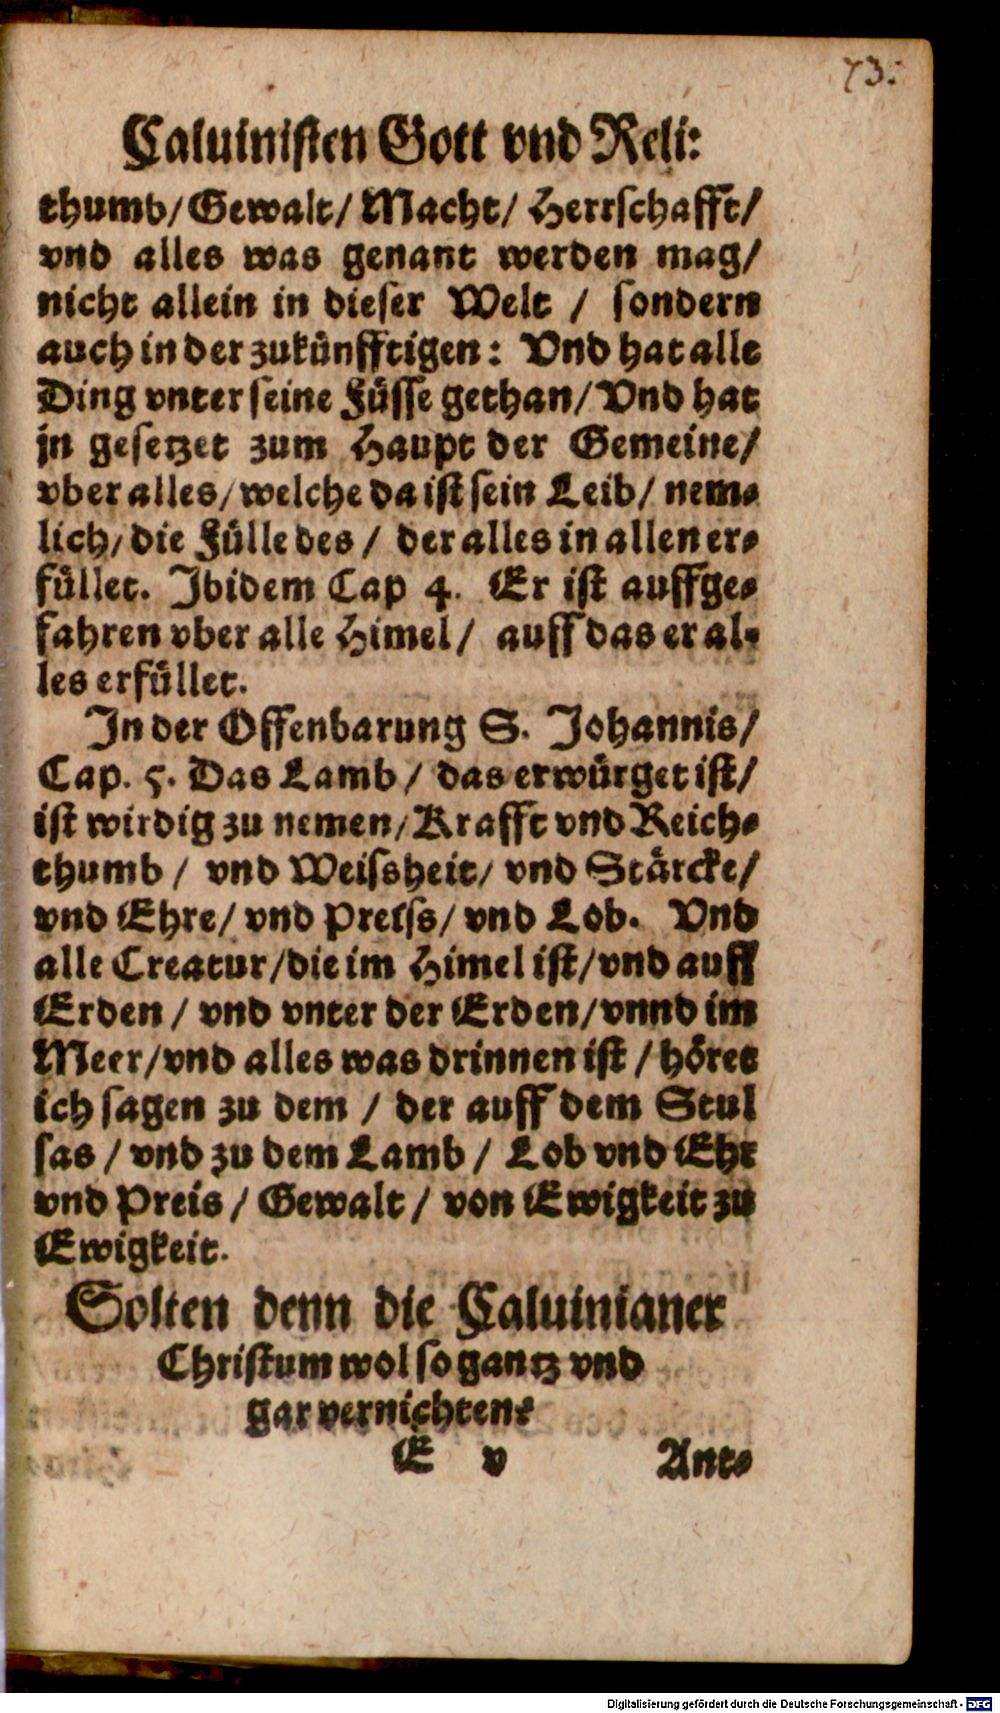 73.
Caluinisten Gott vnd Reli:
thumb/ Gewalt/ Macht/ Herrschafft/
vnd alles was genant werden mag/
nicht allein in dieser Welt / sondern
auch in der zukünfftigen: Vnd hat alle
Ding vnter seine Füsse gethan/ Vnd hat
jn gesetzet zum Haupt der Gemeine/
vber alles/ welche da ist sein Leib/ nem-
lich/ die Fülle des / der alles in allen er-
füllet. Ibidem Cap 4. Er ist auffge-
fahren vber alle Himel/ auff das er al-
les erfüllet.
In der Offenbarung S. Johannis/
Cap. 5. Das Lamb / das erwürget ist/
ist wirdig zu nemen/ Krafft vnd Reich-
thumb / vnd Weissheit/ vnd Stärcke/
vnd Ehre/ vnd Preiss/ vnd Lob. Vnd
alle Creatur/ die im Himel ist/ vnd auff
Erden / vnd vnter der Erden/ vnnd im
Meer/ vnd alles was drinnen ist / höret
ich sagen zu dem / der auff dem Stul
sas / vnd zu dem Lamb / Lob vnd Ehr
vnd Preis / Gewalt / von Ewigkeit zu
Ewigkeit.
Solten denn die Caluinianer
Christum wol so gantz vnd
gar vernichten?
E v Ant-
Digitalisierung gefördert durch die Deutsche Forschungsgemeinschaft - DFG